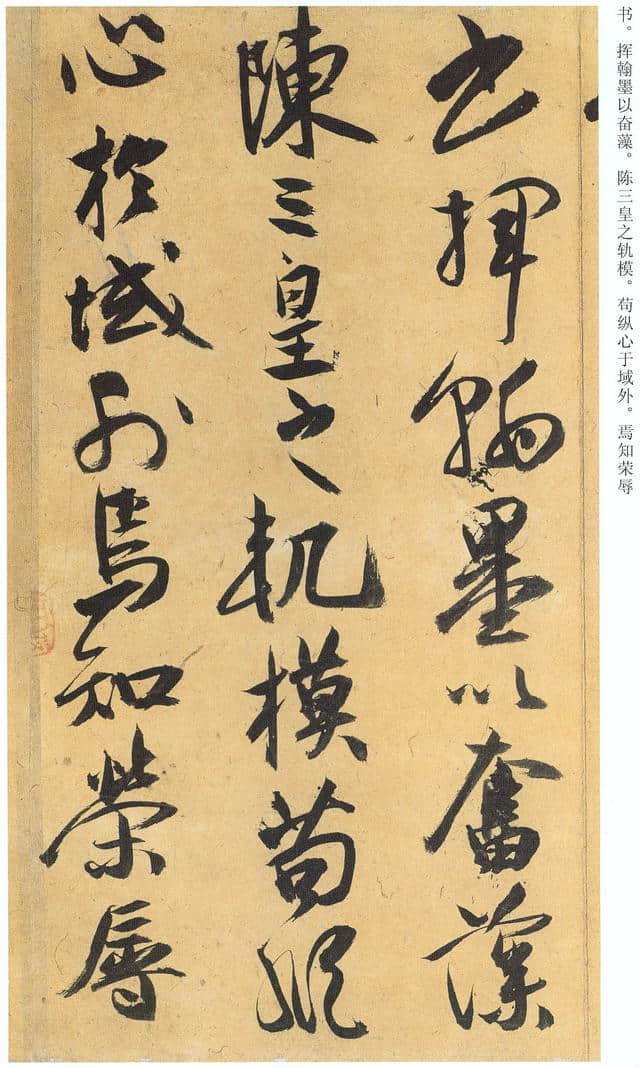 书。挥翰墨以奋藻。陈三皇之轨模。苟纵心于域外。焉知荣辱
書揮翰墨以奮藻
陳三皇之軌模苟縱
心於域外焉知榮辱